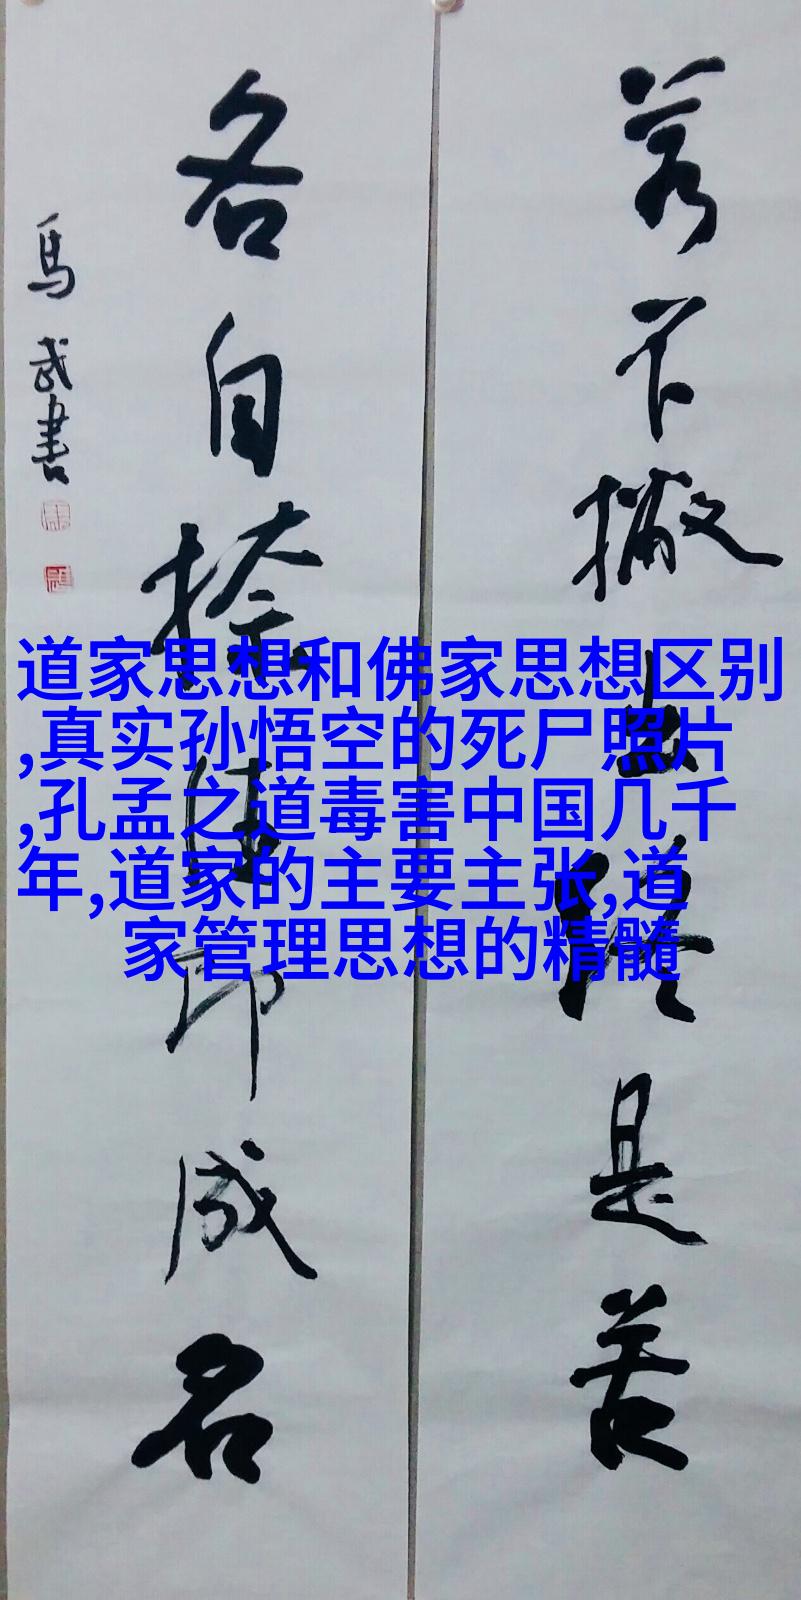 若不撇出终是苦
各自捺住即成名
馬武書
道家思想和佛家思想区别
,真实孙悟空的死尸照片
,孔孟之道毒害中国几千
年,道家的主要主张,道
家管理思想的精髓